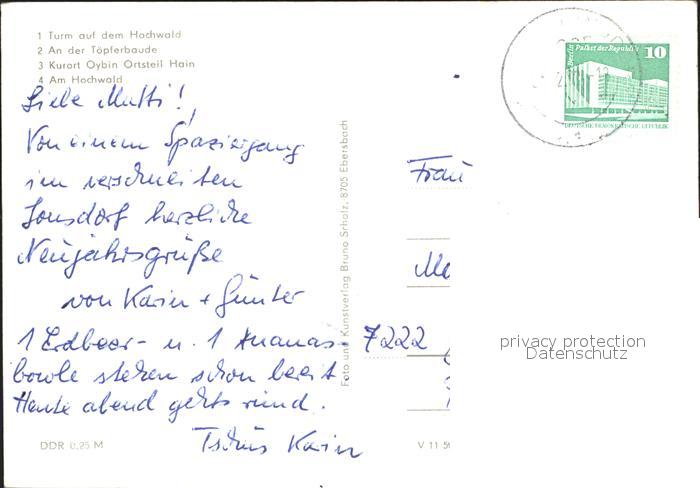 1 Turm auf dem Hochwald
2 An der Töpferbaude
3 Kurort Oybin Ortsteil Hain
4 Am Hochwald
Liebe Mutti!
Von einem Spaziergang
im verschneiten
Jonsdorf herzliche
Neujahrsgrüße
von Karin + Günter
1 Erdbeer- u. 1 Ananas-
bowle stehen schon bereit
Heute abend gehts rund.
Tschüs Karin
DDR 0,25 M
Foto und Kunstverlag Bruno Scholz, 8705 Ebersbach
V 11 5
Berlin Palast der Republik
10
DEUTSCHE DEMOKRATISCHE REPUBLIK
Frau
Me
7222
privacy protection
Datenschutz